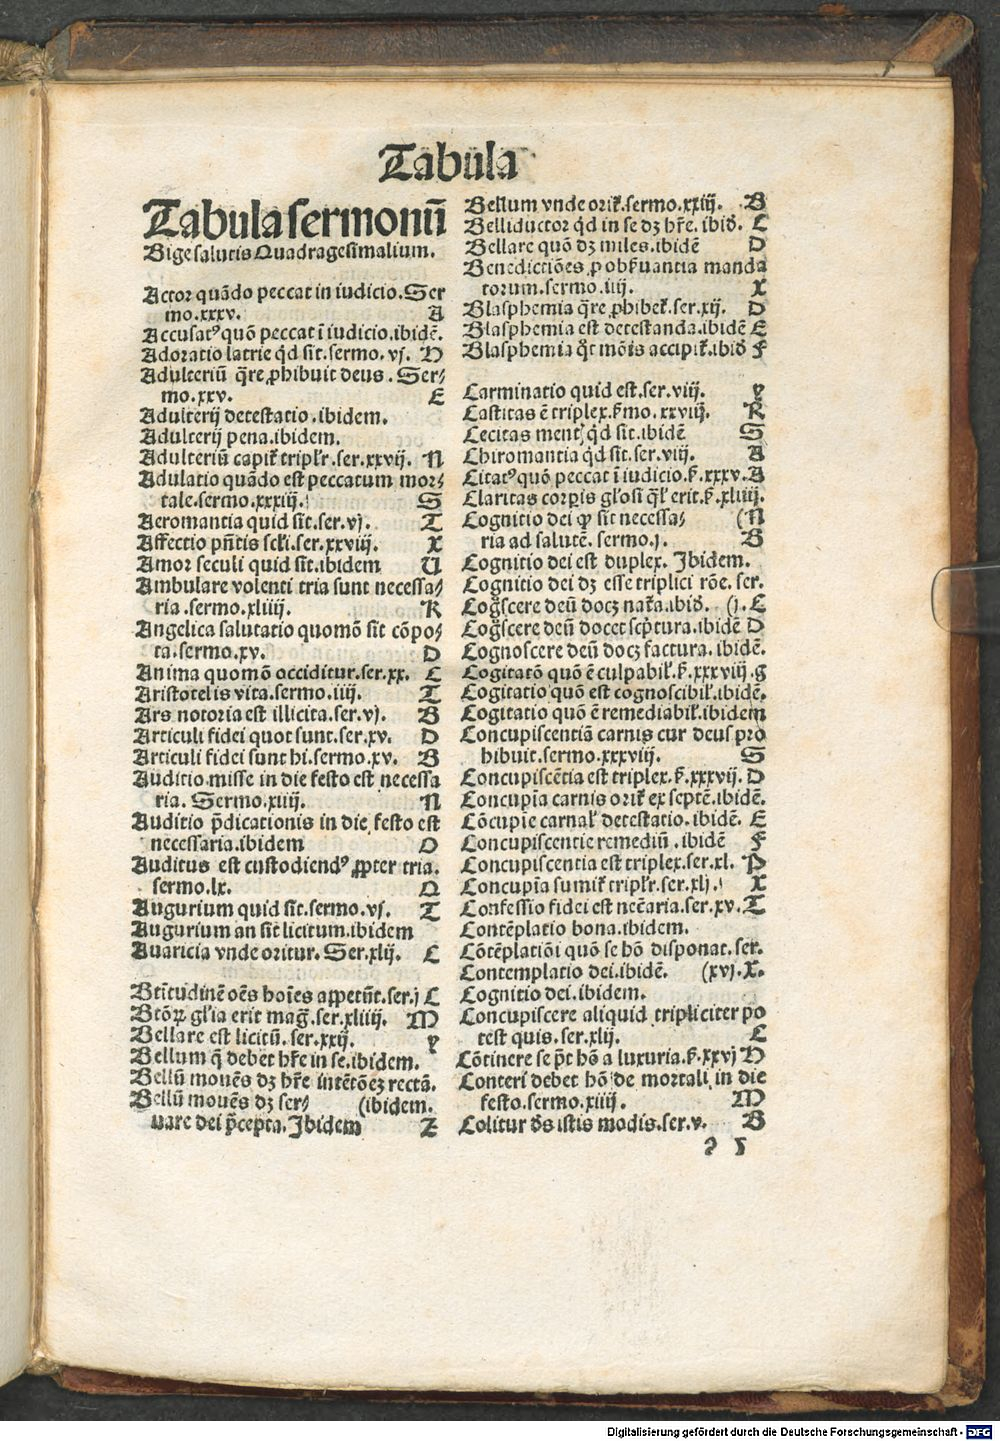 Tabula
Tabula sermonū
Bige salutis Quadragesimalium.
Actor quādo peccat in iudicio. Ser
mo.xxxv. A
Accusatꝰ quō peccat ī iudicio.ibidē.
Adoratio latrie qd sit.sermo.vj. H
Adulteriū qre ꝓhibuit deus. Ser⸗
mo.xxv. E
Adulterij detestatio.ibidem.
Adulterij pena.ibidem.
Adulteriū capit̄ triplr̄.ser.xxvij. N
Adulatio quādo est peccatum mor⸗
tale.sermo.xxxiij. S
Aeromantia quid sit.ser.vj. T
Affectio pn̄tis scl̄i.ser.xxviij. X
Amor seculi quid sit.ibidem U
Ambulare volenti tria sunt necessa⸗
ria.sermo.xliiij. K
Angelica salutatio quomō sit cōpo⸗
ta.sermo.xv. D
Anima quomō occiditur.ser.xx. C
Aristotelis vita.sermo.iiij. T
Ars notoria est illicita.ser.vj. B
Articuli fidei quot sunt.ser.xv. D
Articuli fidei sunt hi.sermo.xv. B
Auditio misse in die festo est necessa
ria. Sermo.xiiij. N
Auditio p̄dicationis in die festo est
necessaria.ibidem O
Auditus est custodiendꝰ ꝓpter tria.
sermo.lx. Q
Augurium quid sit.sermo.vj. T
Augurium an sit licitum.ibidem
Auaricia vnde oritur. Ser.xlij. C
Btītudinē oēs hoīes appetūt.ser.j C
Btōꝝ gl̄ia erit maḡ.ser.xliiij. M
Bellare est licitū.ser.xxij. y
Bellum q̄ debet hr̄e in se.ibidem.
Bellū mouēs dꝫ hr̄e intētōeꝫ rectā.
Bellū mouēs dꝫ ser⸗ (ibidem.
uare dei p̄cepta. Ibidem Z
Bellum vnde orit̄.sermo.xxiij. B
Belliductor qd in se dꝫ hr̄e. ibid̄. C
Bellare quō dꝫ miles.ibidē D
Benedictiōes ꝓ obẜuantia manda
torum.sermo.iiij. X
Blasphemia qre ꝓhibet̄.ser.xij. D
Blasphemia est detestanda.ibidē E
Blasphemia qt mōis accipit̄.ibid̄ F
Carminatio quid est.ser.viij. y
Castitas ē triplex.ẜmo.xxviij. R
Cecitas ment qd sit.ibidē S
Chiromantia qd sit.ser.viij. A
Citatꝰ quō peccat ī iudicio.ẜ.xxxv.A
Claritas corpis gl̄osi ql̄ erit.ẜ.xliiij.
Cognitio dei ꝙ sit necessa⸗ (N
ria ad salutē. sermo.j. B
Cognitio dei est duplex. Ibidem.
Cognitio dei dꝫ esse triplici rōe. ser.
Coḡscere deū docꝫ nat̄a.ibid̄. (j. C
Coḡscere deū docet scp̄tura.ibidē D
Cognoscere deū docꝫ factura. ibidē.
Cogitatō quō ē culpabil̄.ẜ.xxxviij.g
Cogitatio quō est cognoscibil̄.ibidē.
Cogitatio quō ē remediabil̄.ibidem
Concupiscentiā carnis cur deus pro
hibuit.sermo.xxxviij. S
Concupiscētia est triplex.ẜ.xxxvij. D
Concupīa carnis orit̄ ex septē.ibidē.
Cōcupīe carnal̄ detestatio.ibidē. E
Concupiscentie remediū. ibidē F
Concupiscentia est triplex.ser.xl. P
Concupīa sumit̄ triplr̄.ser.xlj. X
Confessio fidei est necēaria.ser.xv. T
Contēplatio bona.ibidem.
Cōtēplatiōi quō se hō disponat. ser.
Contemplatio dei.ibidē. (xvj. X.
Cognitio dei.ibidem.
Concupiscere aliquid tripliciter po
test quis.ser.xlij. C
Cōtinere se pt̄ hō a luxuria.ẜ.xxvj H
Conteri debet hō de mortali in die
festo.sermo.xiiij. M
Colitur de᷒ istis modis.ser.v. B
Digitalisierung gefördert durch die Deutsche Forschungsgemeinschaft - DFG